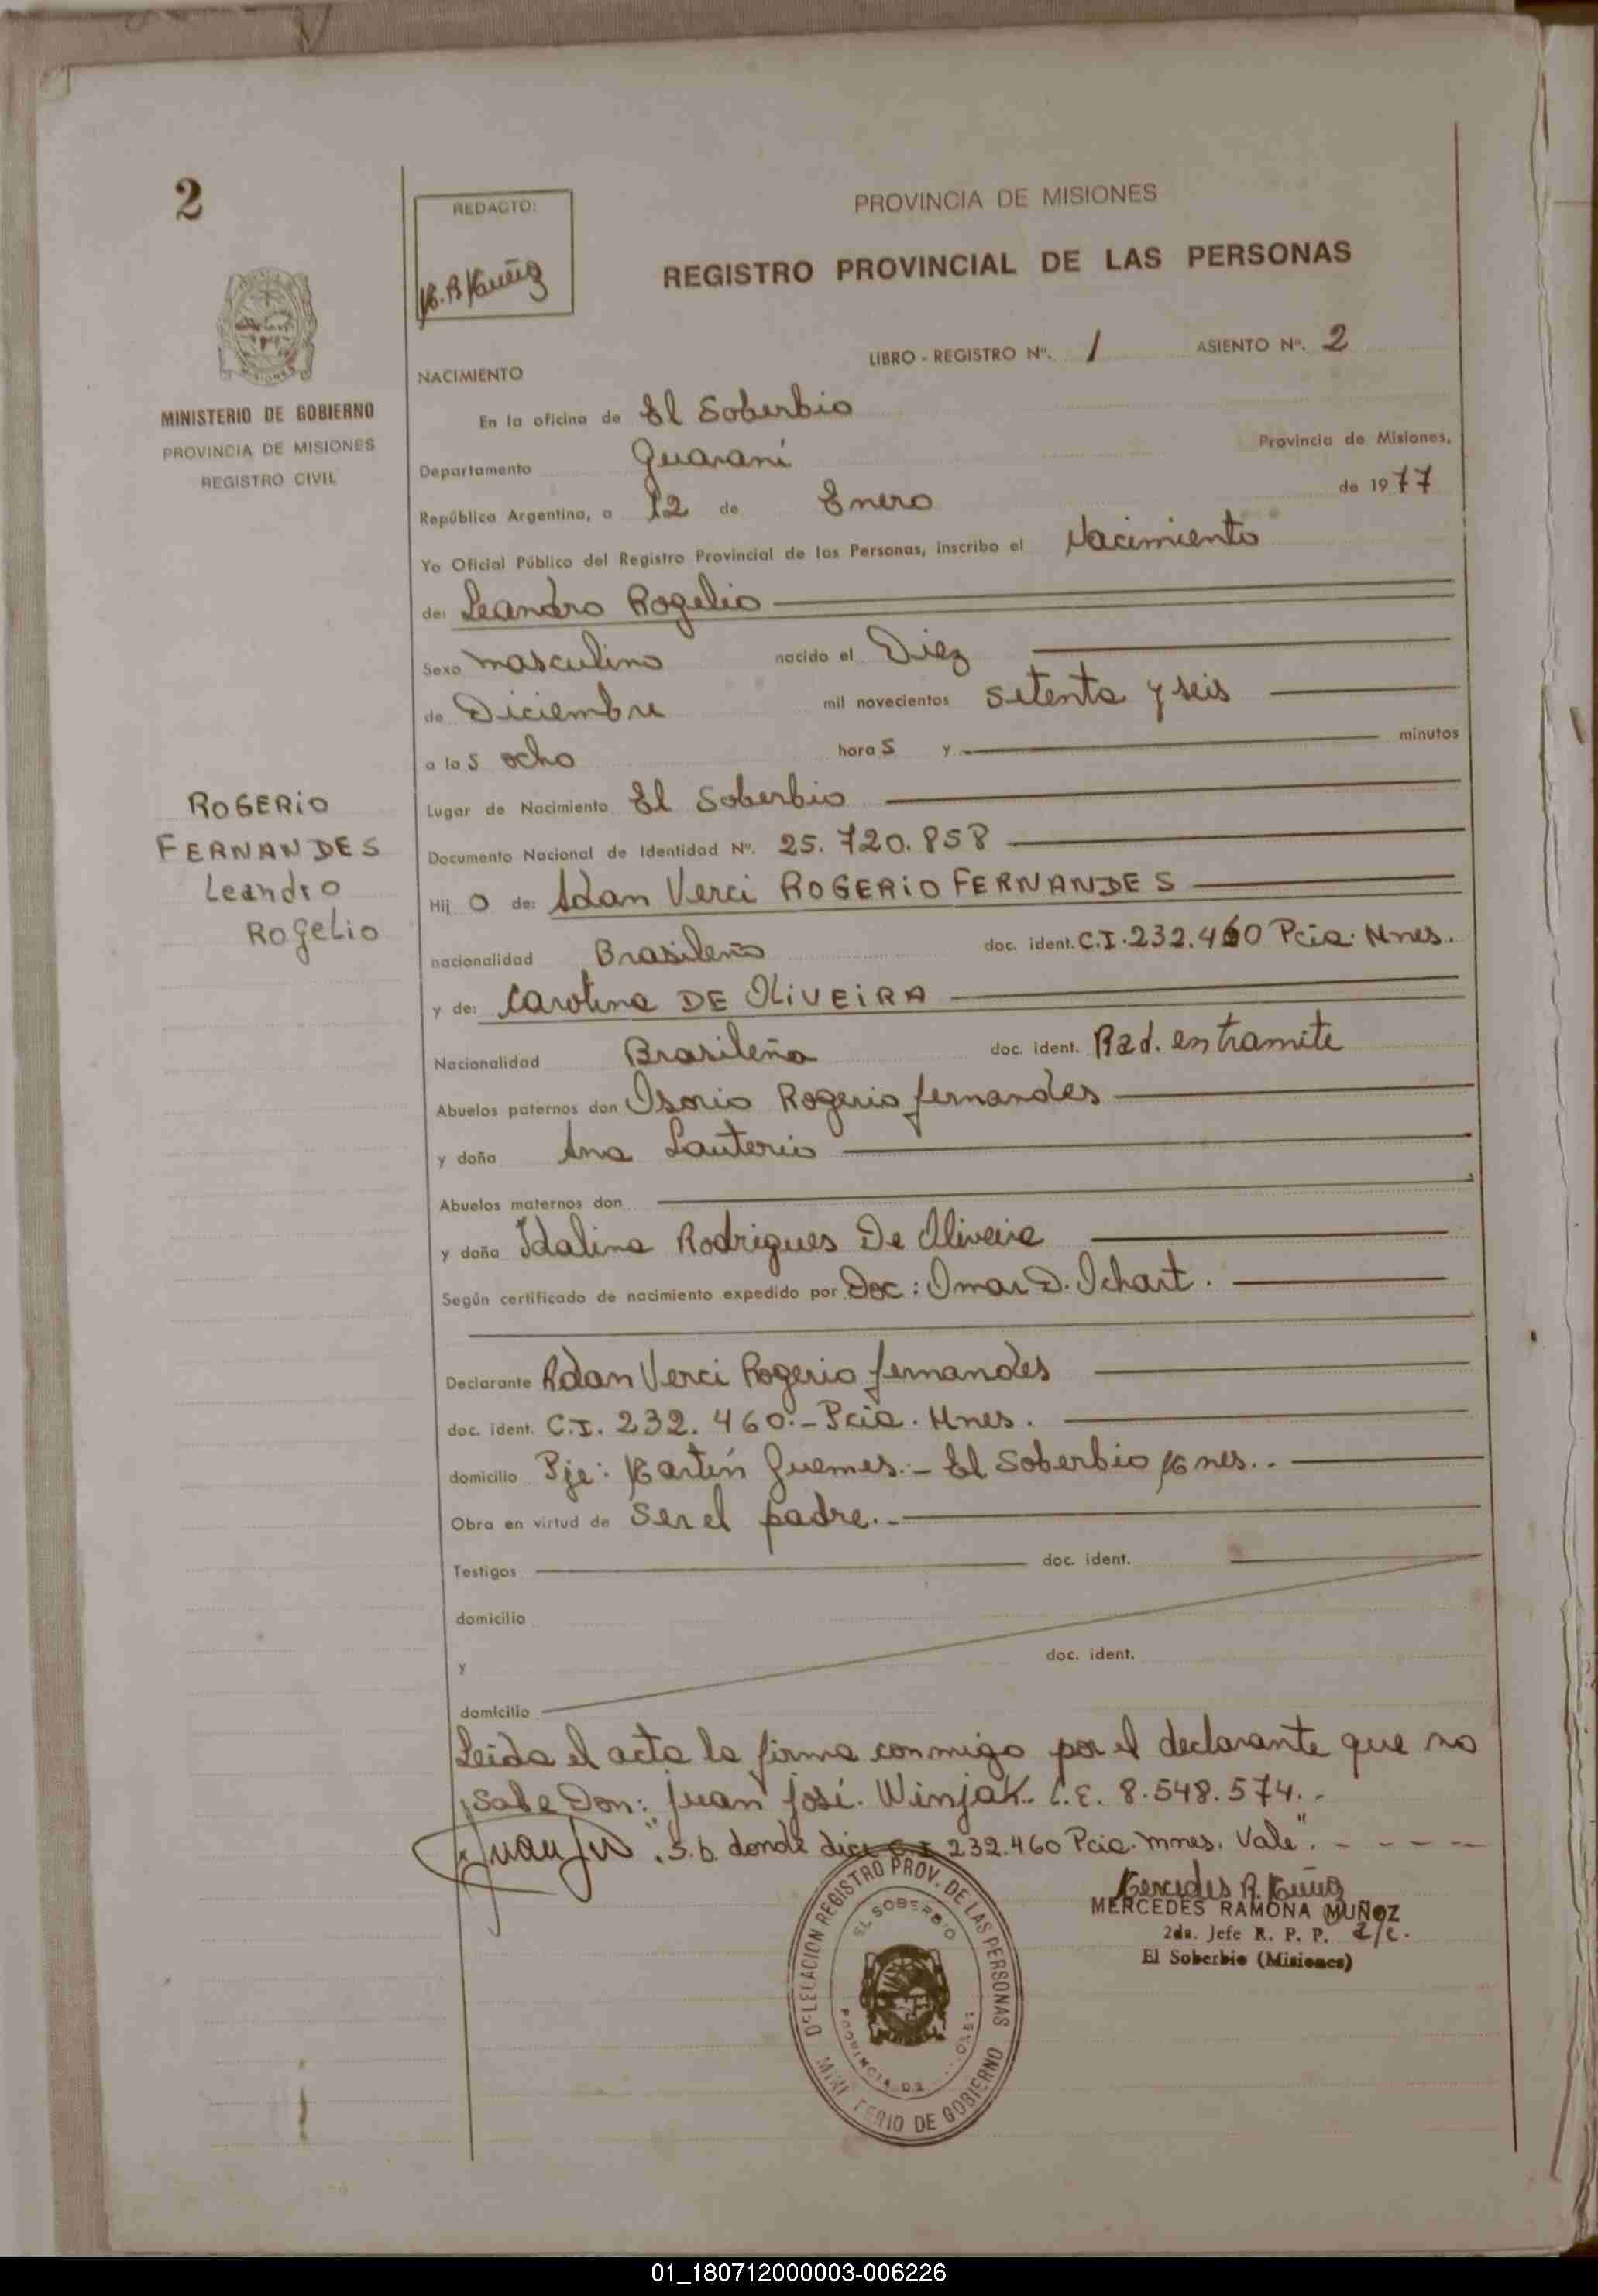 2
REDACTO:
PROVINCIA DE MISIONES
REGISTRO PROVINCIAL DE LAS PERSONAS
LIBRO - REGISTRO Nº. 1 ASIENTO Nº. 2
MINISTERIO DE GOBIERNO
PROVINCIA DE MISIONES
REGISTRO CIVIL
NACIMIENTO
En la oficina de El Soberbio
Departamento Guaraní Provincia de Misiones,
República Argentina, a 12 de Enero de 1977
Yo Oficial Público del Registro Provincial de las Personas, inscribo el Nacimiento
de: Leandro Rogelio
Sexo masculino nacido el Diez
de Diciembre mil novecientos setenta y seis
a las ocho horas y minutos
Lugar de Nacimiento El Soberbio
ROGERIO
FERNANDES
Leandro
Rogelio
Documento Nacional de Identidad Nº. 25.720.858
Hijo de: Adan Verci ROGERIO FERNANDES
nacionalidad Brasileño doc. ident. C.I. 232.460 Pcia. Mnes.
y de: Carolina DE OLIVEIRA
Nacionalidad Brasileña doc. ident. Rad. en tramite
Abuelos paternos don Osorio Rogerio fernandes
y doña Ana Lauterio
Abuelos maternos don
y doña Idalina Rodrigues De Oliveira
Según certificado de nacimiento expedido por Doc: Omar D. Ichart.
Declarante Adan Verci Rogerio fernandes
doc. ident. C.I. 232.460.- Pcia. Mnes.
domicilio Pje: Martín Guemes.- El Soberbio Mnes..
Obra en virtud de Ser el padre..-
Testigos doc. ident.
domicilio
y doc. ident.
domicilio
Leida el acta la firma conmigo por el declarante que no
sabe Don: Juan José. Winjak. L.E. 8.548.574.-
"S.b. donde dice C.I 232.460 Pcia. Mnes. Vale". - - - - -
Mercedes R. Muñoz
MERCEDES RAMONA MUÑOZ
2da. Jefe R. P. P. a/c.
El Soberbio (Misiones)
DELEGACION REGISTRO PROV. DE LAS PERSONAS
EL SOBERBIO
PROVINCIA DE
MINISTERIO DE GOBIERNO
01_180712000003-006226